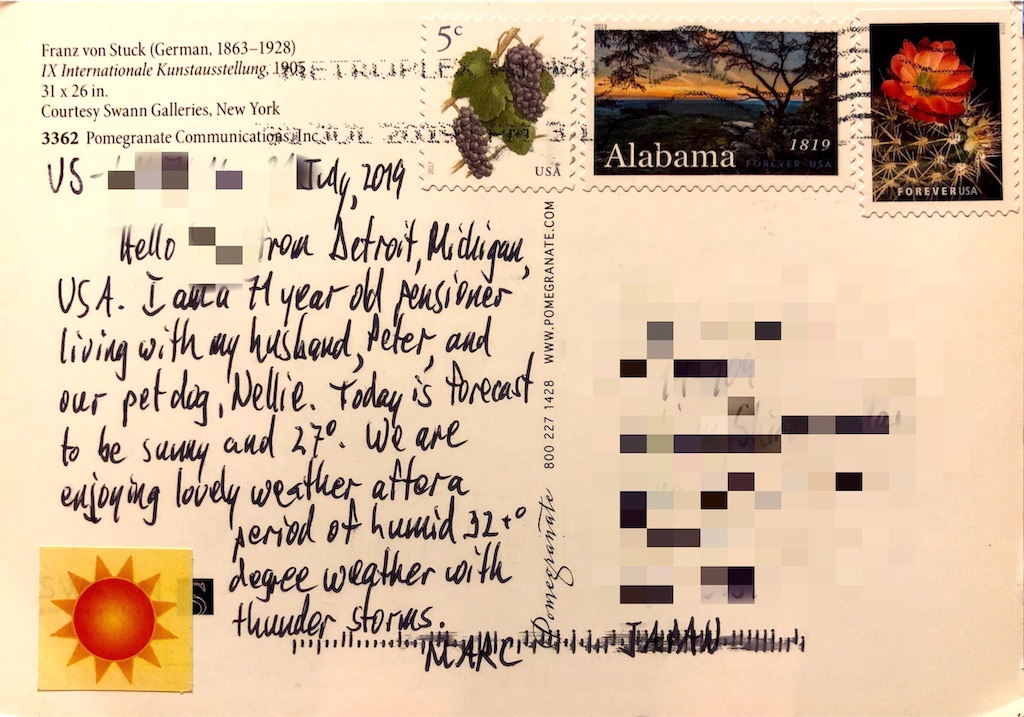 Franz von Stuck (German, 1863–1928)
IX Internationale Kunstausstellung, 1905
31 x 26 in.
Courtesy Swann Galleries, New York
3362 Pomegranate Communications, Inc.
METROPLEX
5c
USA
Alabama
1819
FOREVER USA
FOREVER USA
US-
July, 2019
Hello from Detroit, Michigan,
USA. I am a 71 year old pensioner
living with my husband, Peter, and
our pet dog, Nellie. Today is forecast
to be sunny and 27°. We are
enjoying lovely weather after a
period of humid 32+°
degree weather with
thunder storms.
MARC
Pomegranate 800 227 1428 WWW.POMEGRANATE.COM
JAPAN